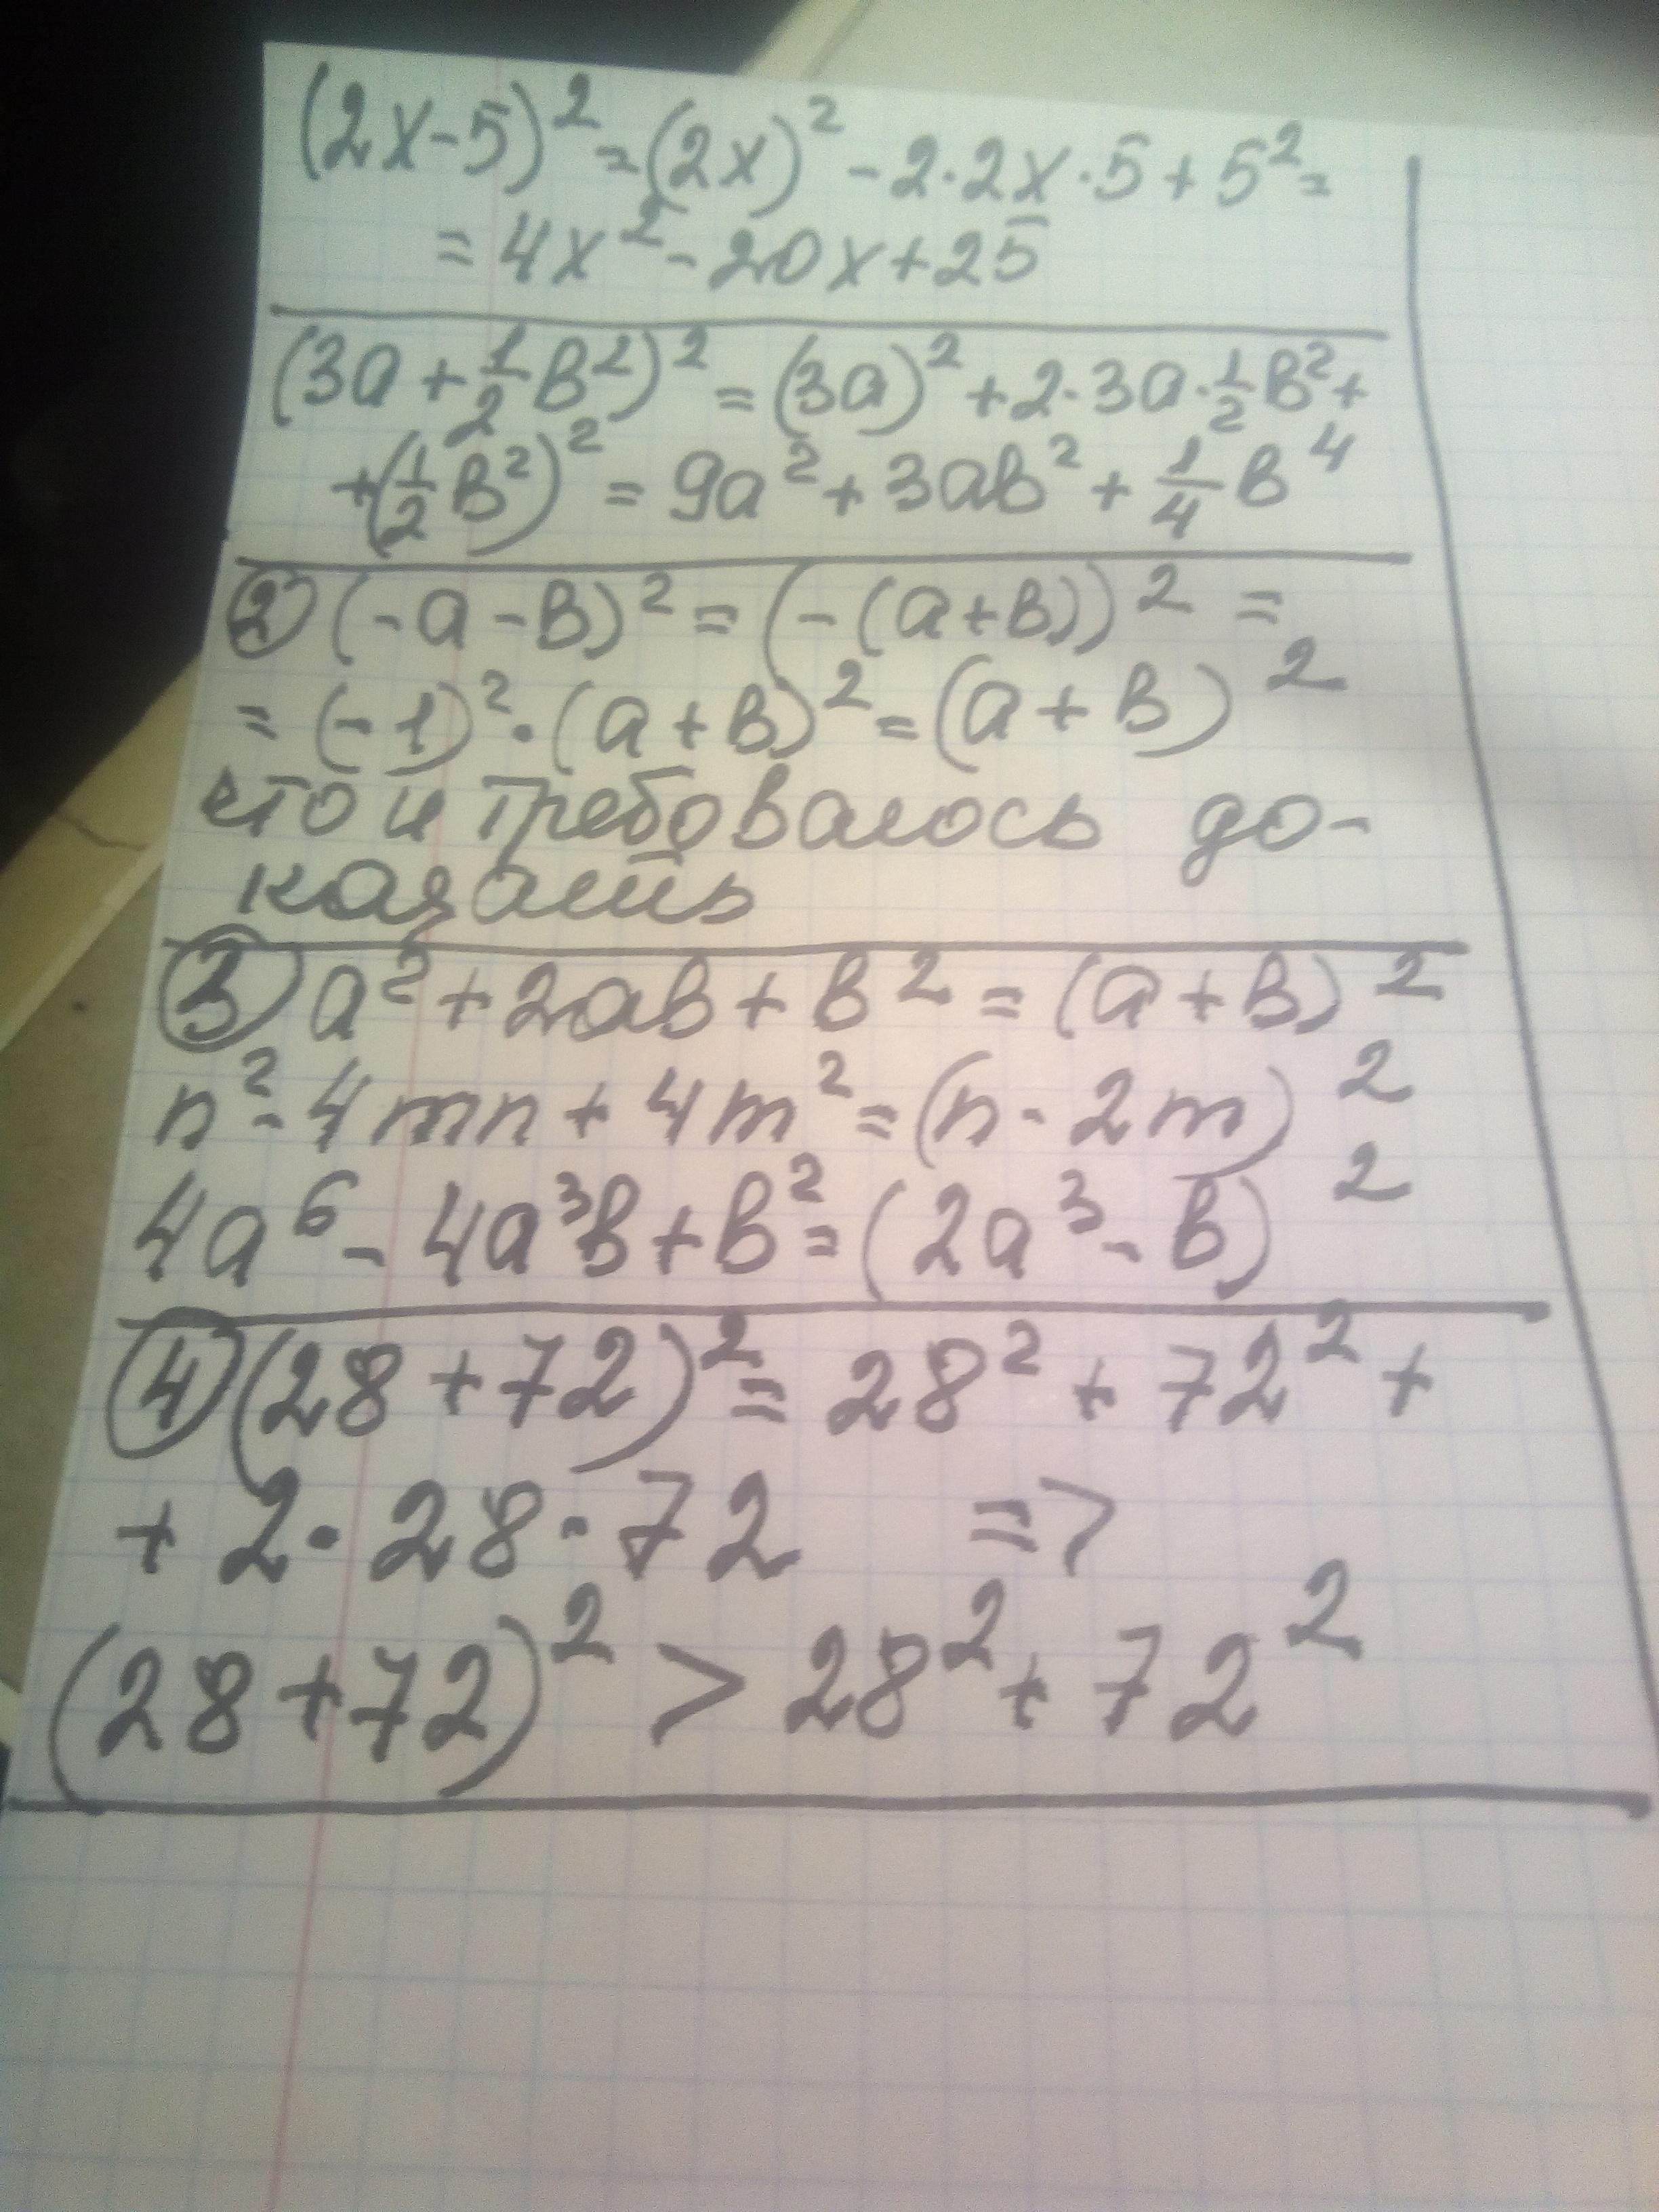 (2x-5)² = (2x)² - 2·2x·5 + 5² =
= 4x² - 20x + 25
(3a + 1/2 в²)² = (3a)² + 2·3a·1/2 в² +
+ (1/2 в²)² = 9a² + 3aв² + 1/4 в⁴
② (-a-в)² = (-(a+в))² =
= (-1)²·(a+в)² = (a+в)²
что и требовалось до-
казать
③ a² + 2aв + в² = (a+в)²
n² - 4mn + 4m² = (n-2m)²
4a⁶ - 4a³в + в² = (2a³-в)²
④ (28+72)² = 28² + 72² +
+ 2·28·72 =>
(28+72)² > 28² + 72²